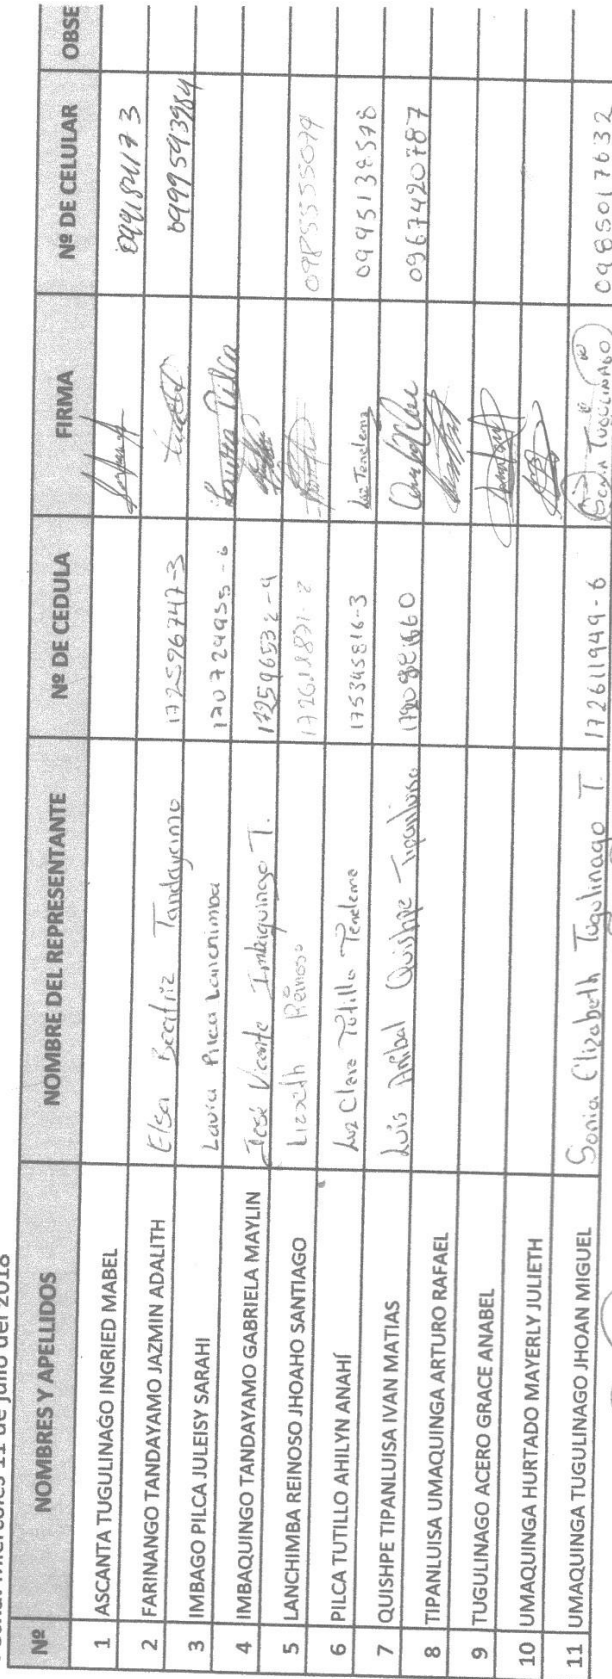 miércoles 11 de julio del 2018
Nº NOMBRES Y APELLIDOS NOMBRE DEL REPRESENTANTE Nº DE CEDULA FIRMA Nº DE CELULAR OBSE
1 ASCANTA TUGULINAGO INGRIED MABEL
2 FARINANGO TANDAYAMO JAZMIN ADALITH Elsa Beatriz Tandayamo 172596747-3 0999593984
3 IMBAGO PILCA JULEISY SARAHI Laura Pilca Lanchimba 170729955-6 Laura Pilca
4 IMBAQUINGO TANDAYAMO GABRIELA MAYLIN José Vicente Imbaquingo T. 172596532-9
5 LANCHIMBA REINOSO JHOAHO SANTIAGO Lizseth Reinoso 0985555079
6 PILCA TUTILLO AHILYN ANAHÍ Luz Clara Tutillo Tenelema 175345816-3 Luz Tenelema 0995138578
7 QUISHPE TIPANLUISA IVAN MATIAS Luis Anibal Quishpe Tipanluisa 0967420787
8 TIPANLUISA UMAQUINGA ARTURO RAFAEL
9 TUGULINAGO ACERO GRACE ANABEL
10 UMAQUINGA HURTADO MAYERLY JULIETH
11 UMAQUINGA TUGULINAGO JHOAN MIGUEL Sonia Elizabeth Tugulinago T. 172611949-6 Sonia Tugulinago 0985017632